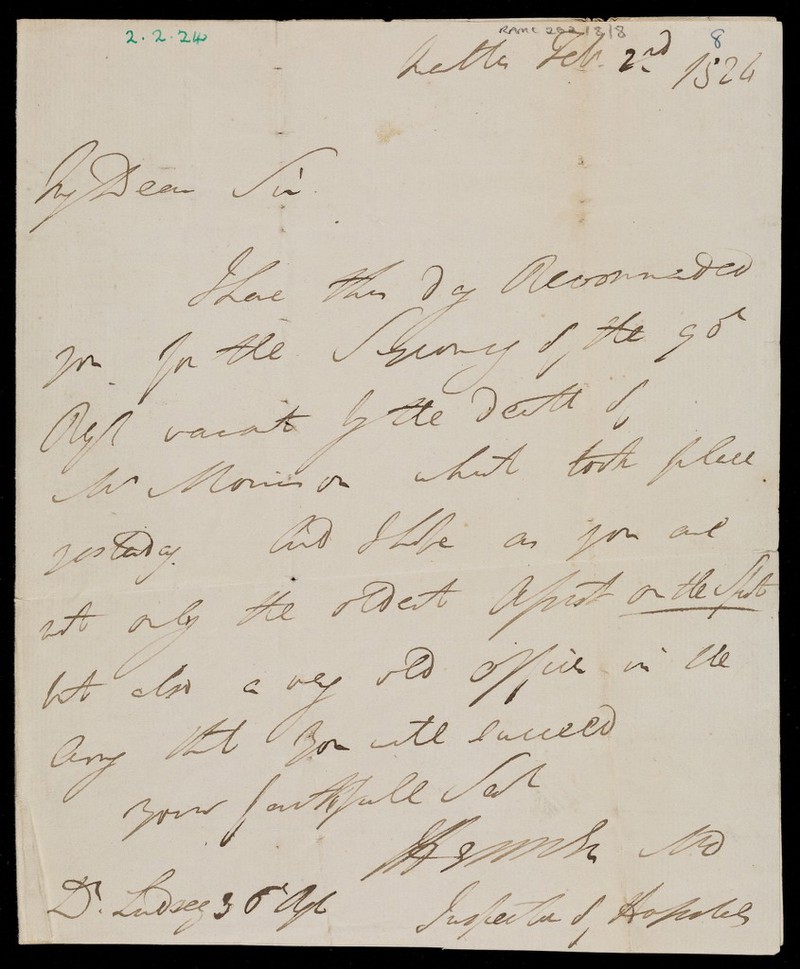 2.2.24
RAMC 262/3/8
8
Malta Feb. 2nd 1824
My Dear Sir.
I have this day Recommended
you for the Surgeoncy of the 90th
Regt vacant by the Death of
Mr Morrison which took place
yesterday And I hope as you are
not only the oldest Assist on the Spot
but also a very old officer in the
Army that you will succeed
your faithfull Servt
MD
Dr. Lindsey 36th Regt
Inspector of Hospitals